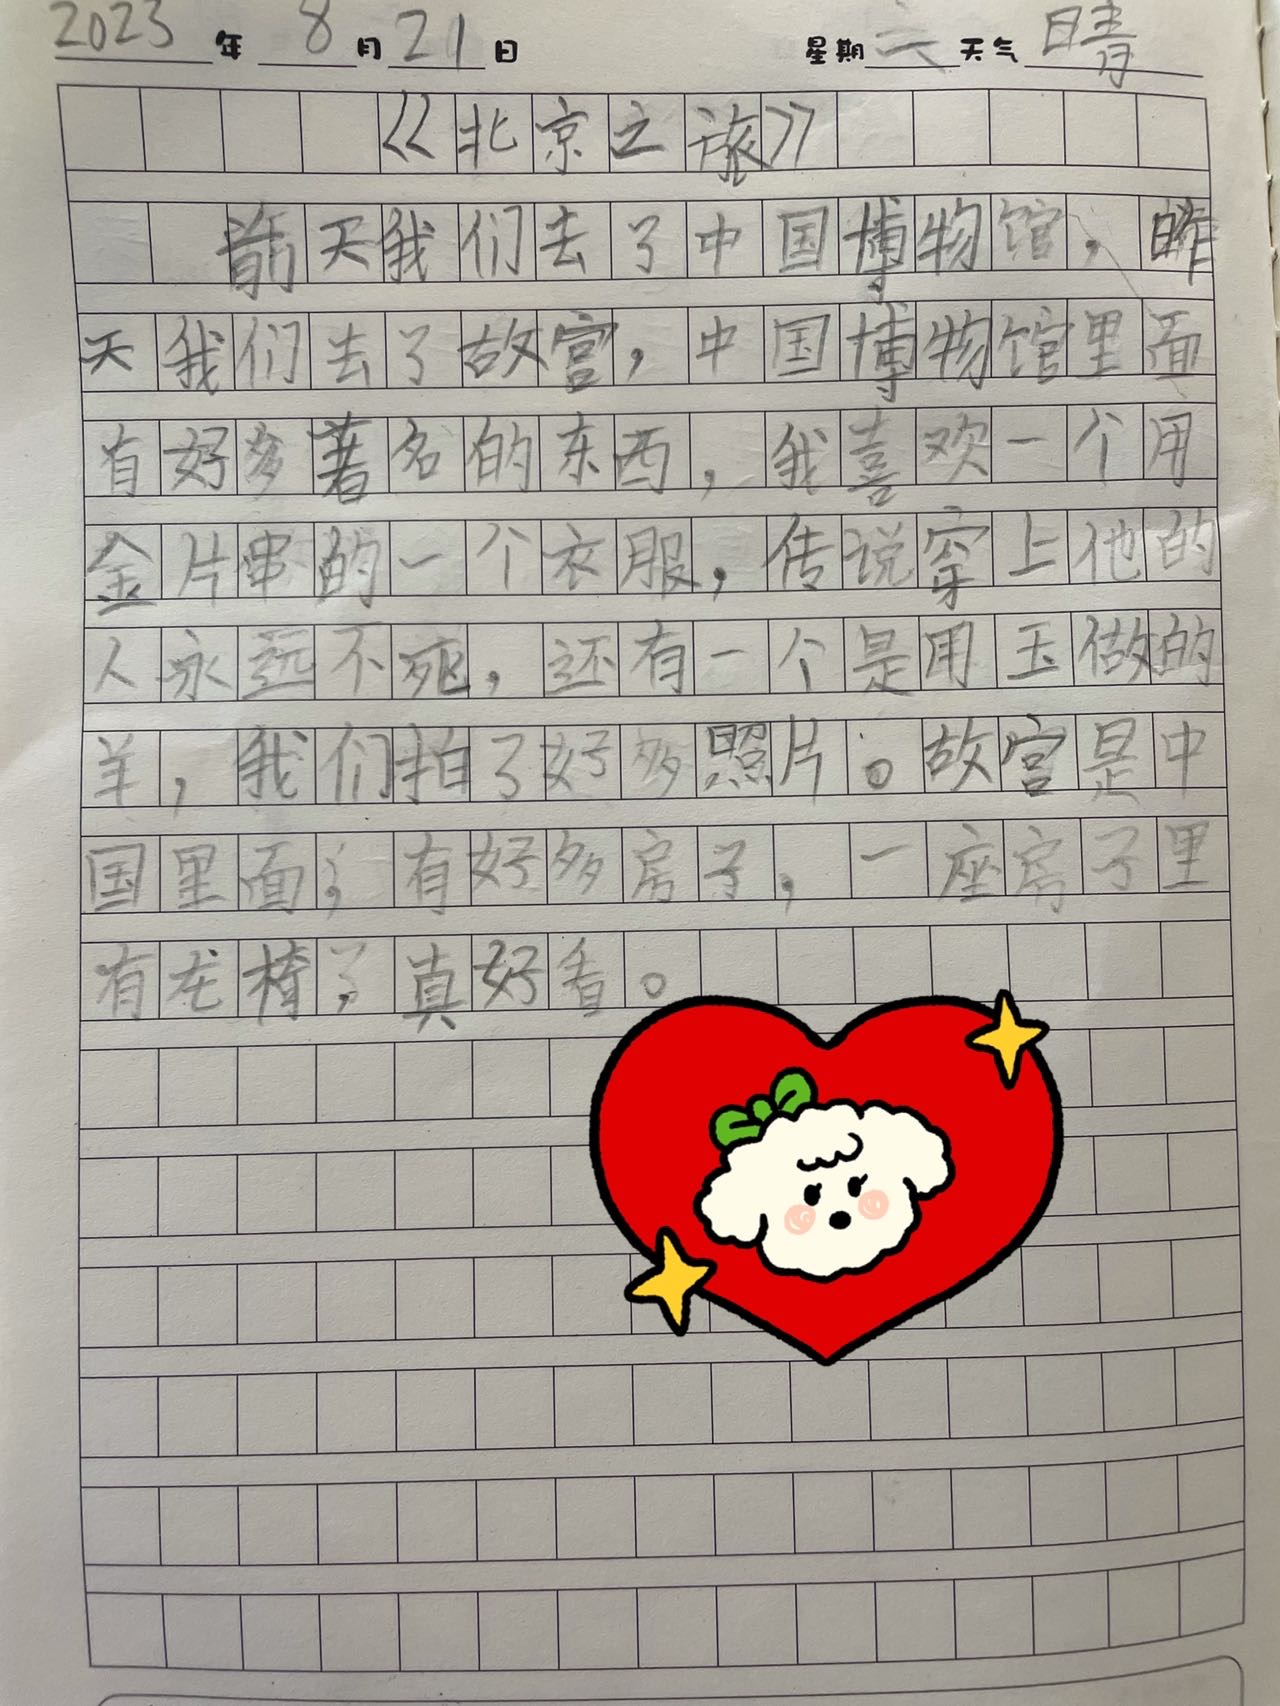 2023年8月21日 星期 天气晴
《北京之旅》
前天我们去了中国博物馆，昨
天我们去了故宫，中国博物馆里面
有好多著名的东西，我喜欢一个用
金片串的一个衣服，传说穿上他的
人永远不死，还有一个是用玉做的
羊，我们拍了好多照片。故宫是中
国里面，有好多房子，一座房子里
有龙椅，真好看。